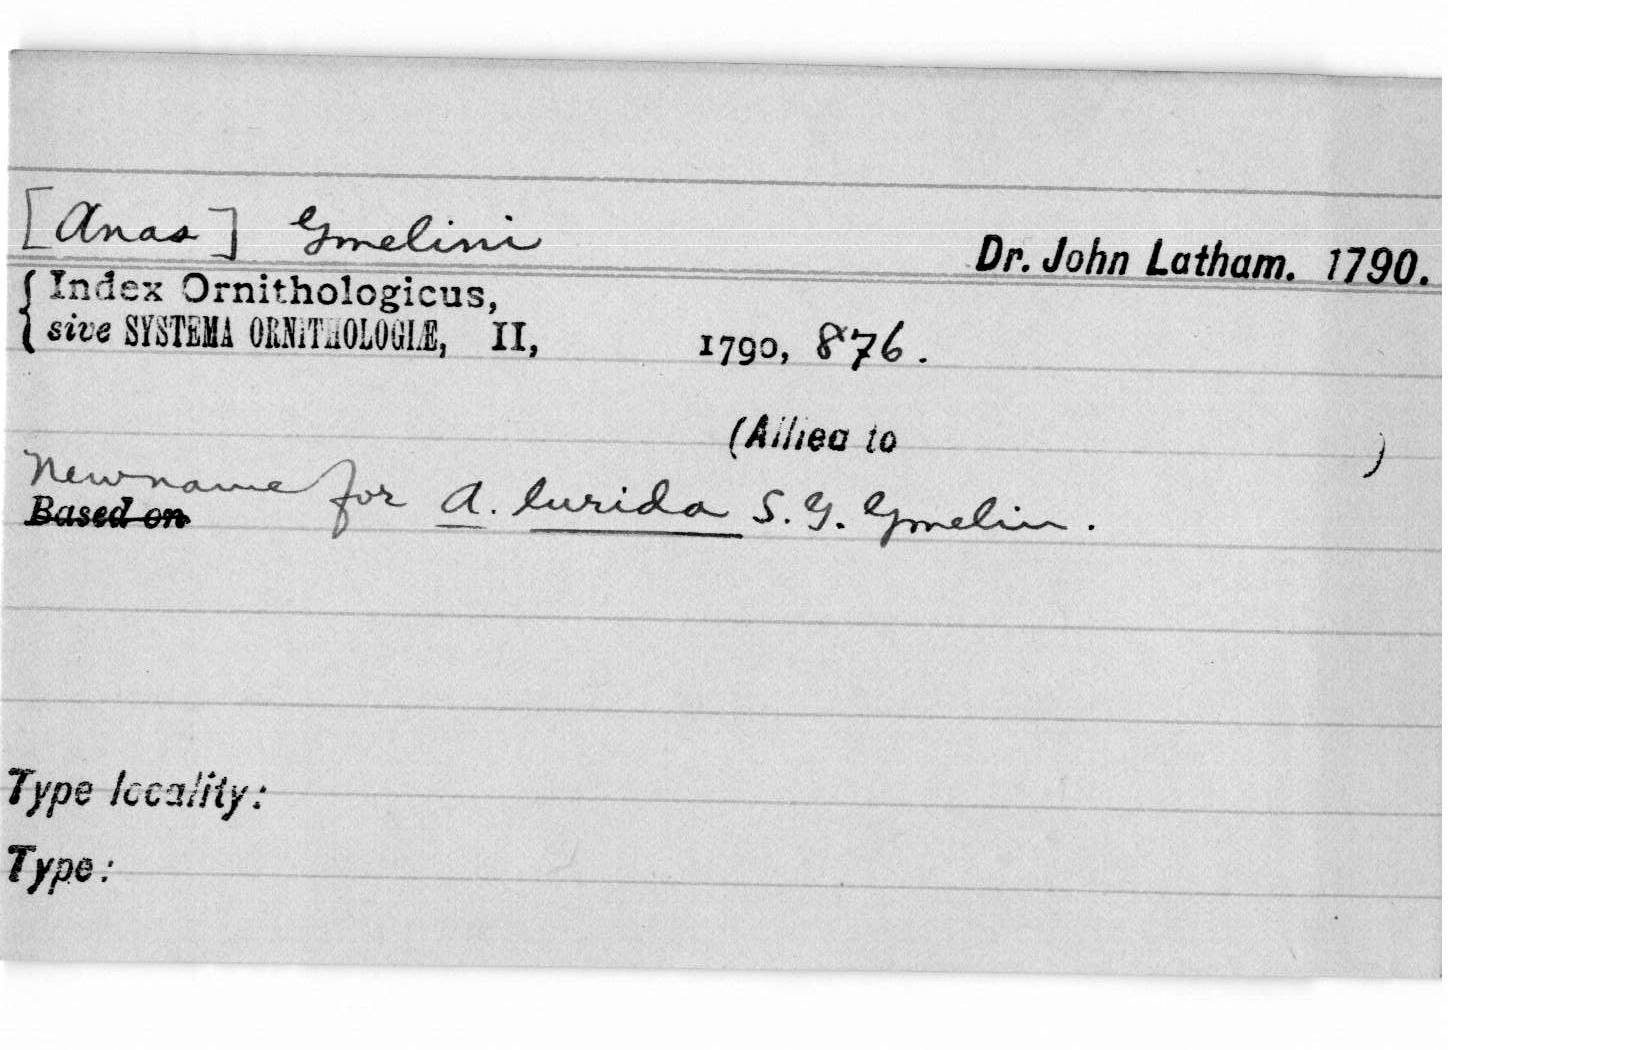 [Anas] Gmelini
Dr. John Latham. 1790.
{ Index Ornithologicus,
{ sive SYSTEMA ORNITHOLOGIÆ, II, 1790, 876.
(Allied to )
New name for A. lurida S. G. Gmelin.
Based on
Type locality:
Type: